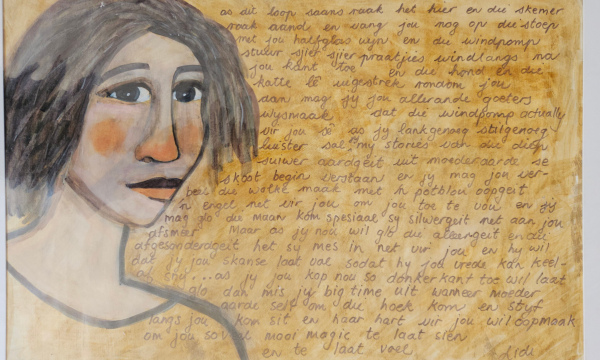 as dit loop saans raak het hier en die skemer
raak aand en vang jou nog op die stoep
met jou halfglas wyn en die windpomp
stuur sjier sjier praatjies windlangs na
jou kant toe en die hond en die
katte lê uitgestrek rondom jou
dan mag jy jou allerande goeters
wysmaak dat die windpomp actually
vir jou sê as jy lankgenoeg stilgenoeg
luister sal my stories van die diep
suiwer aardgeit uit moederaarde se
skoot begin verstaan en jy mag jou ver-
beel die wolke maak met 'n potblou oopgeit
'n engel net vir jou om jou toe te vou en jy
mag glo die maan kom spesiaal sy silwergeit net aan jou
afsmeer Maar as jy nou wil glo die alleengeit en die
afgesonderdgeit het sy mes in net vir jou en hy wil
dat jy jou skanse laat val sodat hy jou vrede kan keel-
af sny...as jy jou kop nou so donkerkant toe wil laat
glo dan mis jy big time uit wanneer moeder
aarde self om die hoek kom en styf
langs jou kom sit en haar hart vir jou wil oopmaak
om jou soveel mooi magic te laat sien
en te laat voel